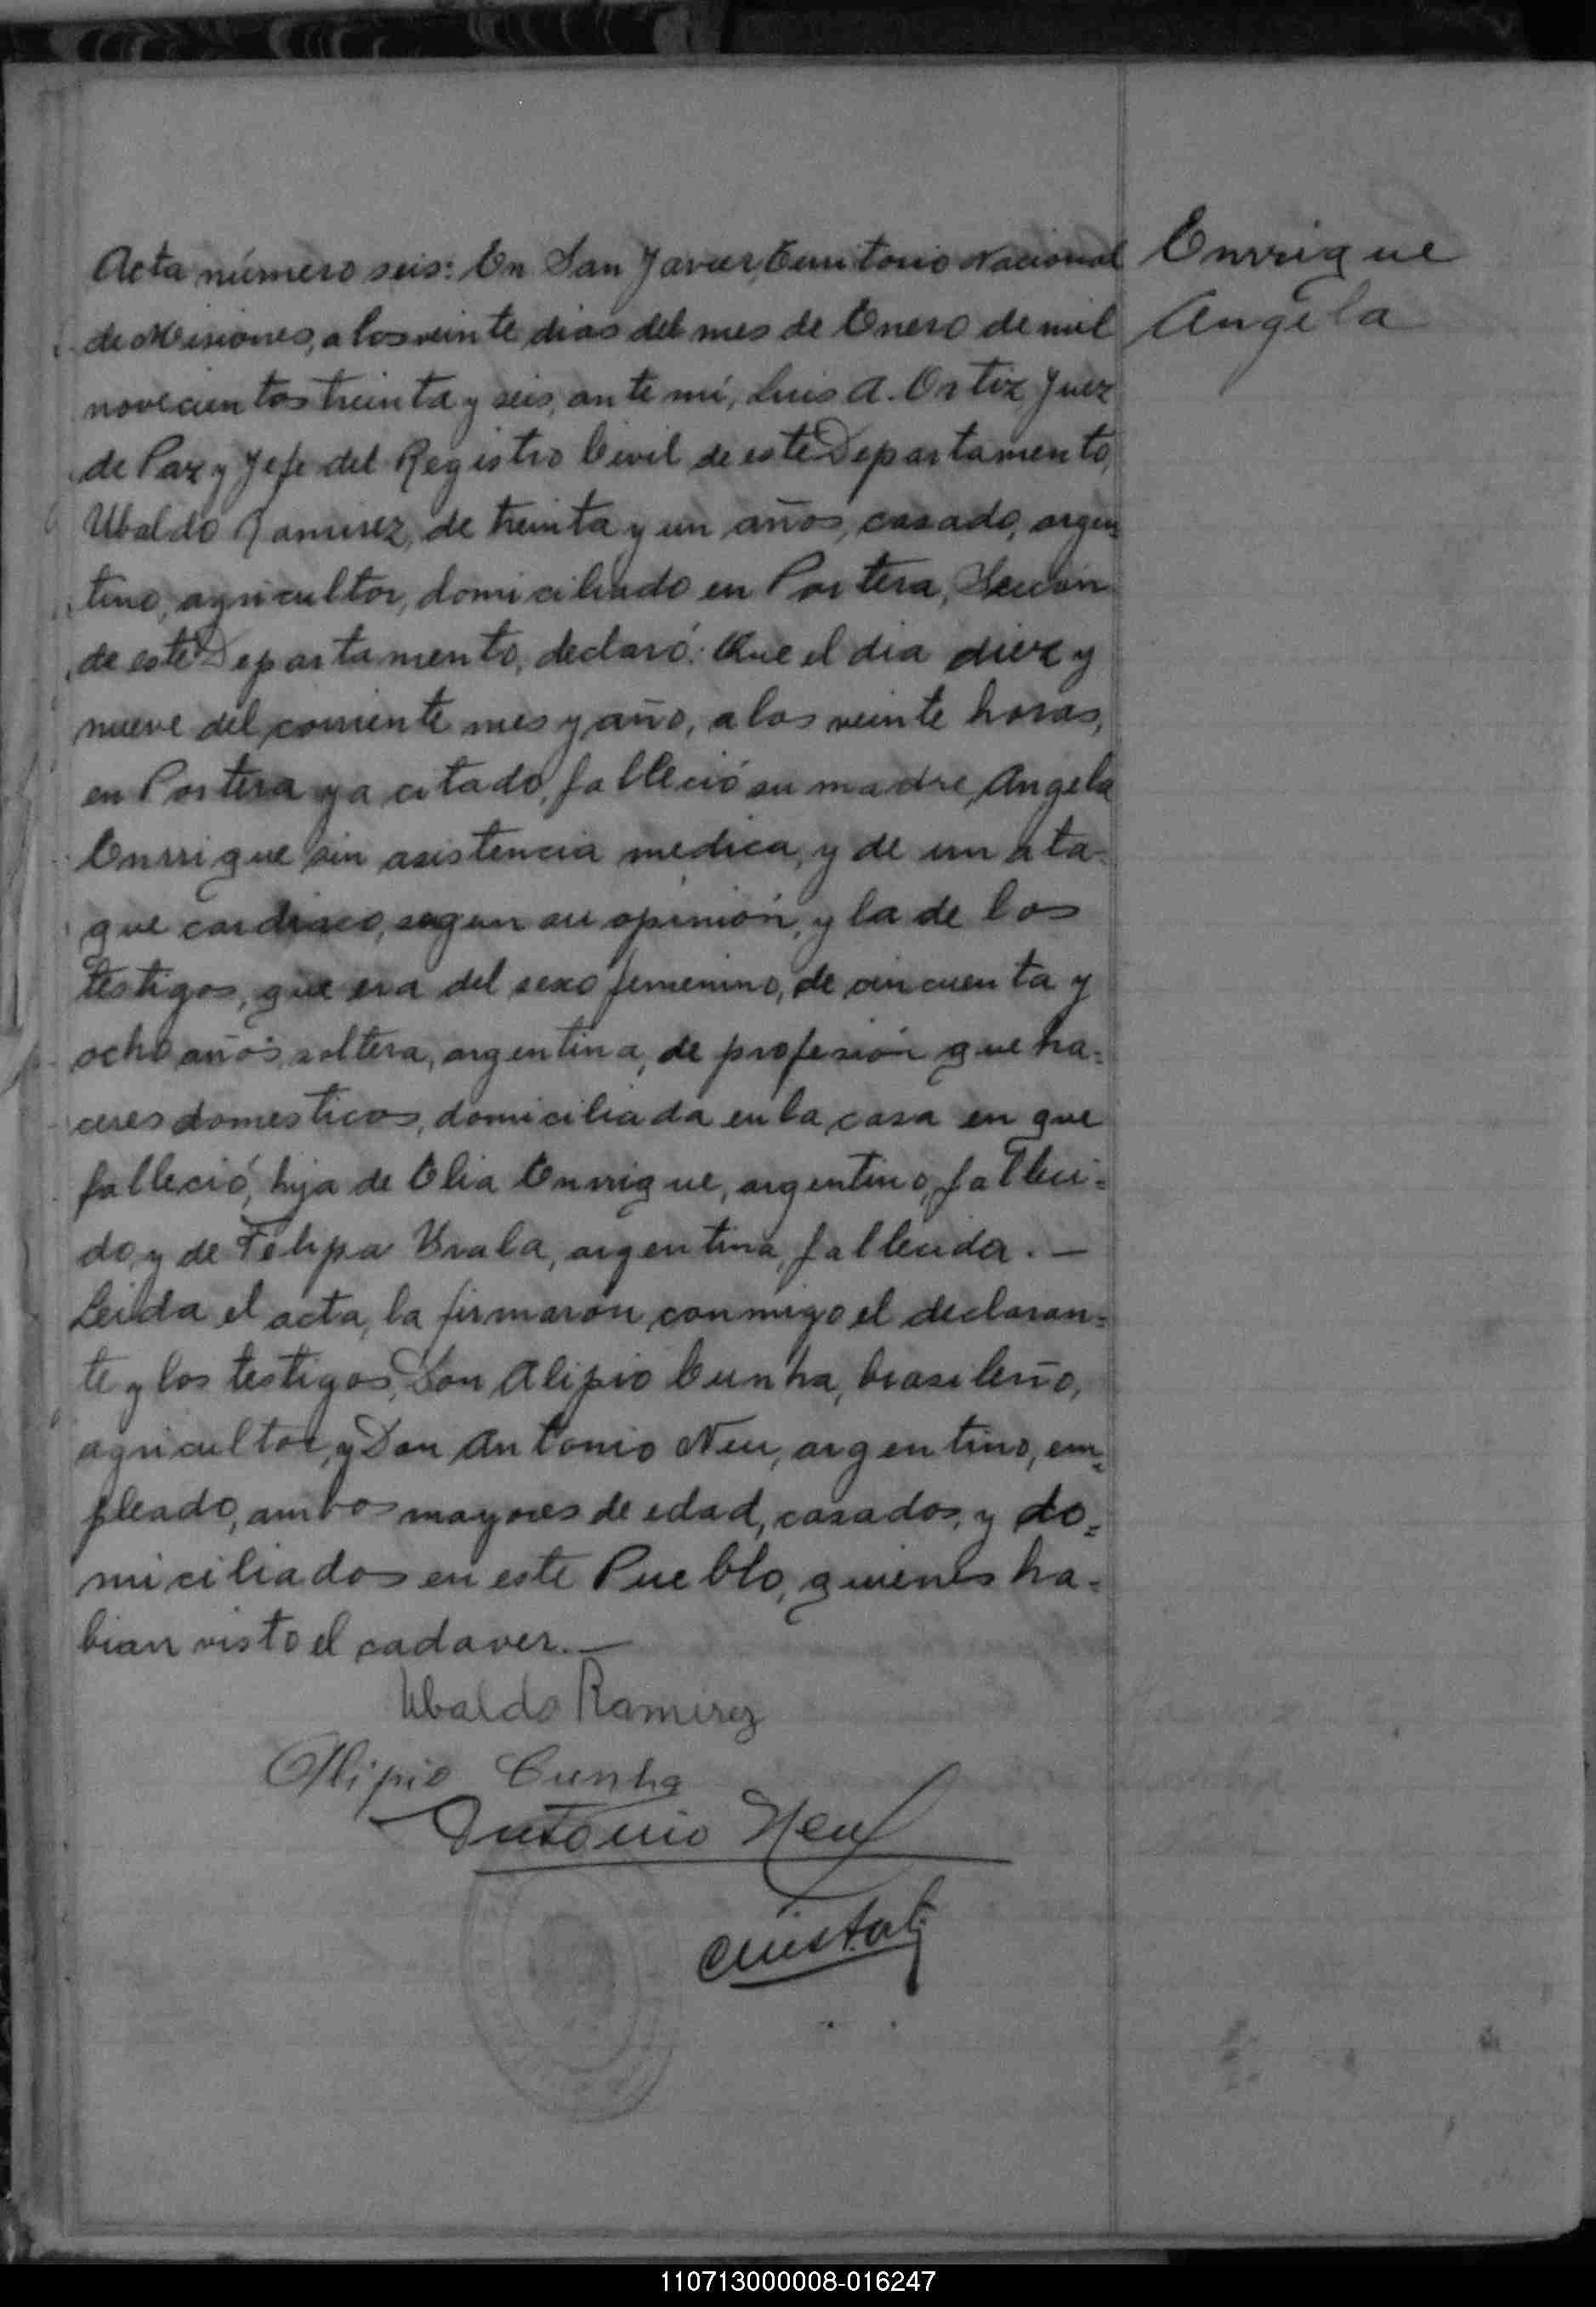 Acta número seis: En San Javier, Territorio Nacional
de Misiones, a los veinte dias del mes de Enero de mil
novecientos treinta y seis, ante mí, Luis A. Ortiz, Juez
de Paz y Jefe del Registro Civil de este Departamento,
Ubaldo Ramirez, de treinta y un años, casado, argen=
tino, agricultor, domiciliado en Portera, Sección
de este Departamento, declaró: Que el dia diez y
nueve del corriente mes y año, a las veinte horas,
en Portera ya citado, falleció su madre, Angela
Enrrique sin asistencia medica, y de un ata=
que cardiaco, segun su opinión, y la de los
testigos, que era del sexo femenino, de cincuenta y
ocho años, soltera, argentina, de profesión queha=
ceres domesticos, domiciliada en la casa en que
falleció, hija de Elia Enrrique, argentino, falleci=
do, y de Felipa, argentina, fallecida. —
Leida el acta, la firmaron conmigo el declaran=
te y los testigos, Don Alipio Cunha, brasileño,
agricultor, y Don Antonio Neu, argentino, em=
pleado, ambos mayores de edad, casados, y do=
miciliados en este Pueblo, quienes ha=
bian visto el cadaver. —
Ubaldo Ramirez
Alipio Cunha
Antonio Neu
Enrrique
Angela
110713000008-016247